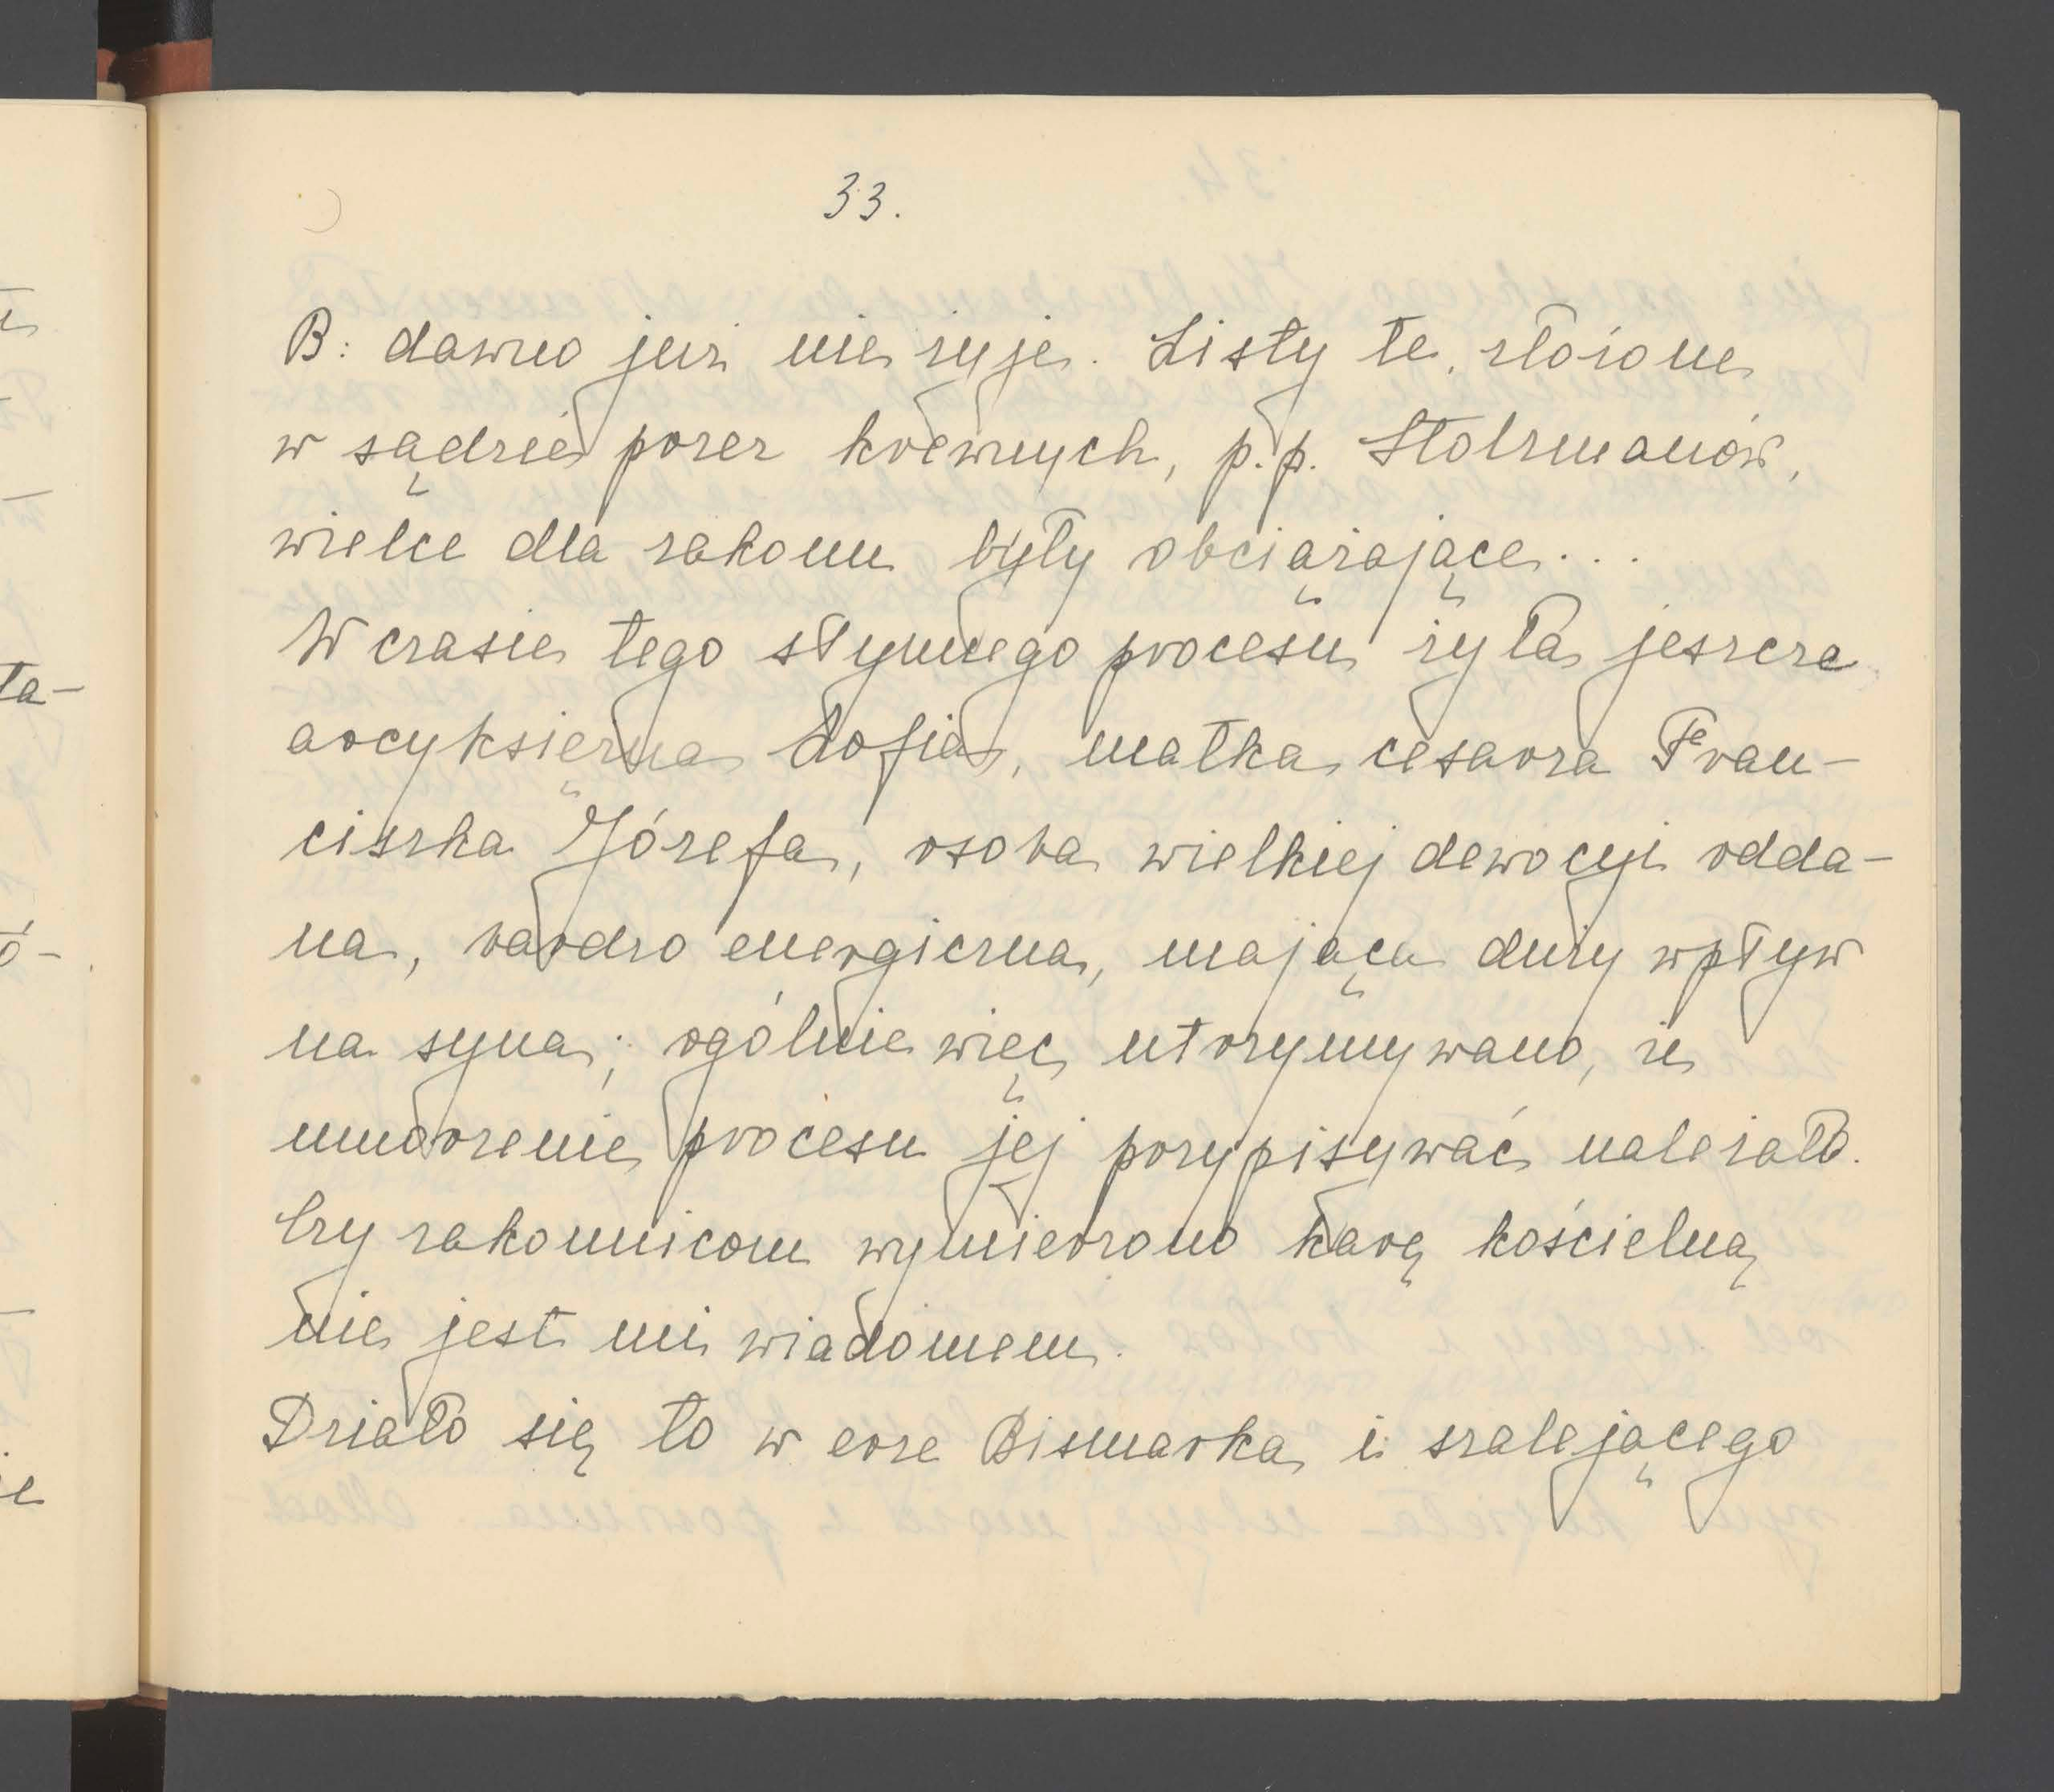 33.
B: dawno już nie żyje. Listy te, złożone
w sądzie przez krewnych, p.p. Stolzmanów,
wielce dla zakonu były obciążające...
W czasie tego słynnego procesu żyła jeszcze
arcyksiężna Zofia, matka cesarza Fran-
ciszka Józefa, osoba wielkiej dewocyi odda-
na, bardzo energiczna, mająca duży wpływ
na syna; ogólnie więc utrzymywano, że
umorzenie procesu jej przypisywać należało.
Czy zakonnicom wymierzono karę kościelną
nie jest mi wiadomem.
Działo się to w erze Bismarka i szalejącego